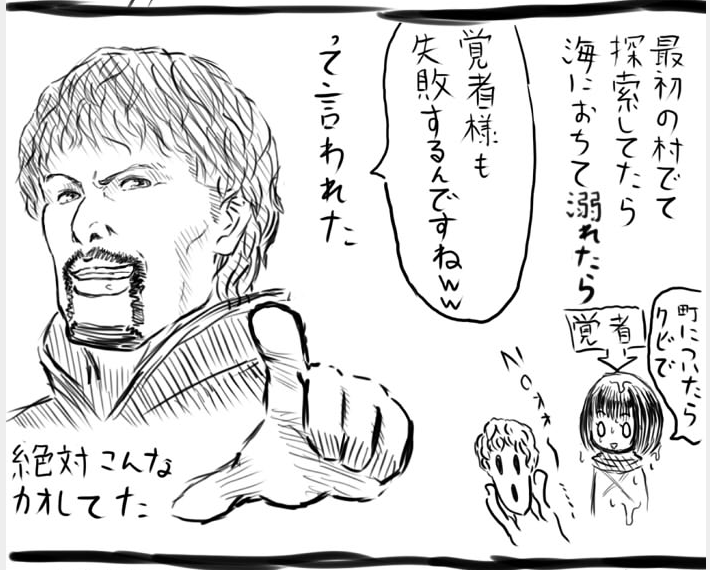 最初の村でて
探索してたら
海におちて溺れたら
覚者様も
失敗するんですねww
って言われた
絶対こんな
カオしてた
覚者
町についたら
クビで
Noォォー!……